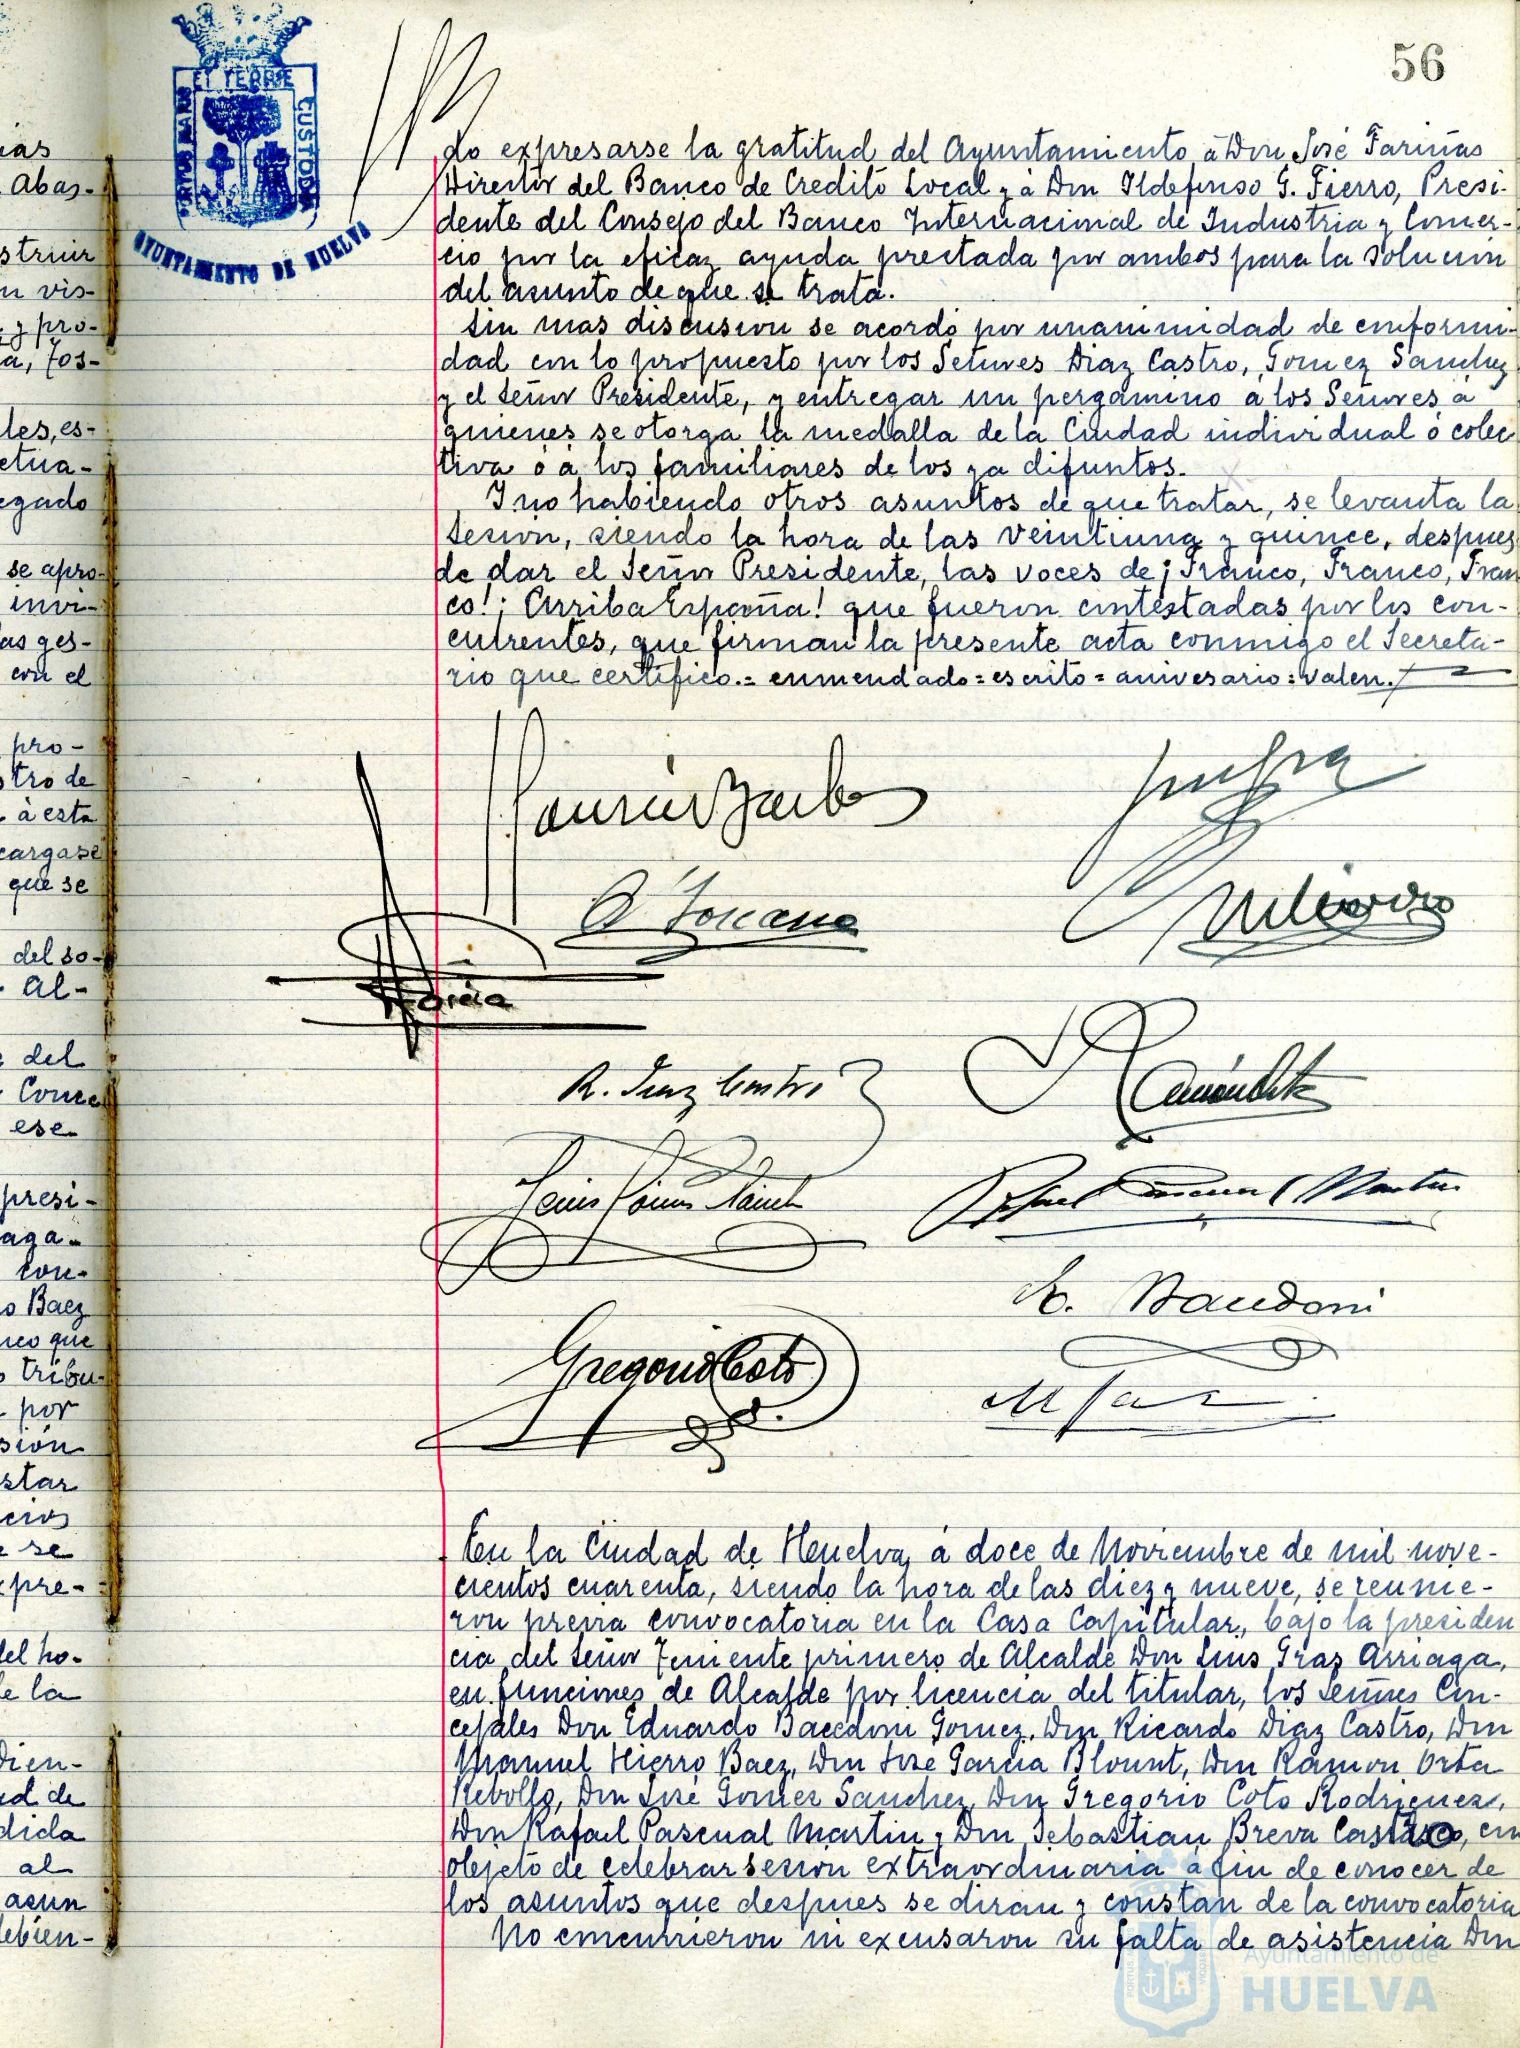 56
PORTUS MARIS ET TERRE CUSTODIA
AYUNTAMIENTO DE HUELVA
do expresarse la gratitud del Ayuntamiento á Don José Fariñas
Director del Banco de Credito Local y á Don Ildefonso G. Fierro, Presi-
dente del Consejo del Banco Internacional de Industria y Comer-
cio por la eficaz ayuda prestada por ambos para la solucion
del asunto de que se trata.
Sin mas discusion se acordó por unanimidad de conformi-
dad con lo propuesto por los Señores Diaz Castro, Gomez Sanchez
y el Señor Presidente, y entregar un pergamino á los Señores á
quienes se otorga la medalla de la Ciudad individual ó colec
tiva ó á los familiares de los ya difuntos.
Y no habiendo otros asuntos de que tratar, se levanta la
sesion, siendo la hora de las veintiuna y quince, despues
de dar el Señor Presidente, las voces de ¡Franco, Franco, Fran
co! ¡Arriba España! que fueron contestadas por los con-
currentes, que firman la presente acta conmigo el Secreta-
rio que certifico.= enmendado=escrito=aniversario=valen.
A. Toscano
Garcia
R. Diaz Castro
Ramón Orta
Rafael Pascual Martin
E. Bacedoni
Gregorio Coto
En la Ciudad de Huelva, á doce de Noviembre de mil nove-
cientos cuarenta, siendo la hora de las diez y nueve, se reunie-
ron previa convocatoria en la Casa Capitular, bajo la presiden
cia del Señor Teniente primero de Alcalde Don Luis Gras Arriaga,
en funciones de Alcalde por licencia del titular, los Señores Con-
cejales Don Eduardo Bacedoni Gomez, Don Ricardo Diaz Castro, Don
Manuel Hierro Baez, Don José Garcia Blount, Don Ramon Orta
Rebollo, Don José Gomez Sanchez, Don Gregorio Coto Rodriguez,
Don Rafael Pascual Martin y Don Sebastian Breva Castro, con
objeto de celebrar sesion extraordinaria á fin de conocer de
los asuntos que despues se diran y constan de la convocatoria
No concurrieron ni excusaron su falta de asistencia Don
Ayuntamiento de
HUELVA